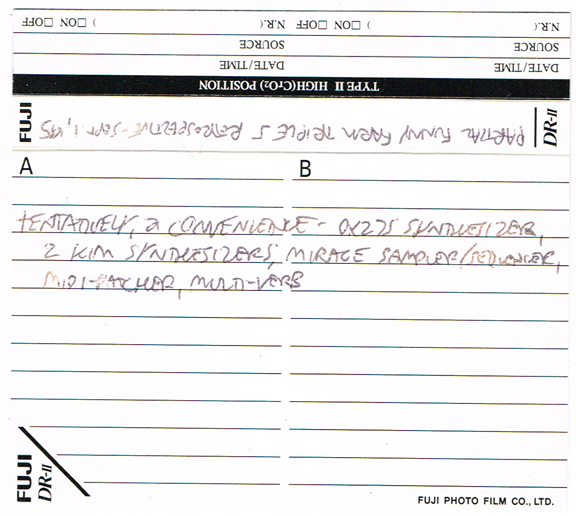 N.R.( ) □ON □OFF N.R.( ) □ON □OFF
SOURCE SOURCE
DATE/TIME DATE/TIME
TYPE II HIGH(CrO2) POSITION
FUJI
PARTIAL FUNNY FARM TRIPLE S RETROSPECTIVE-SEPT 1, '95
DR-II
A B
tENTATIVELY, a CONVENIENCE - DX27S SYNTHESIZER,
2 KIM SYNTHESIZERS, MIRAGE SAMPLER/SEQUENCER,
MIDI-PATCHER, MULTI-VERB
FUJI
DR-II
FUJI PHOTO FILM CO., LTD.